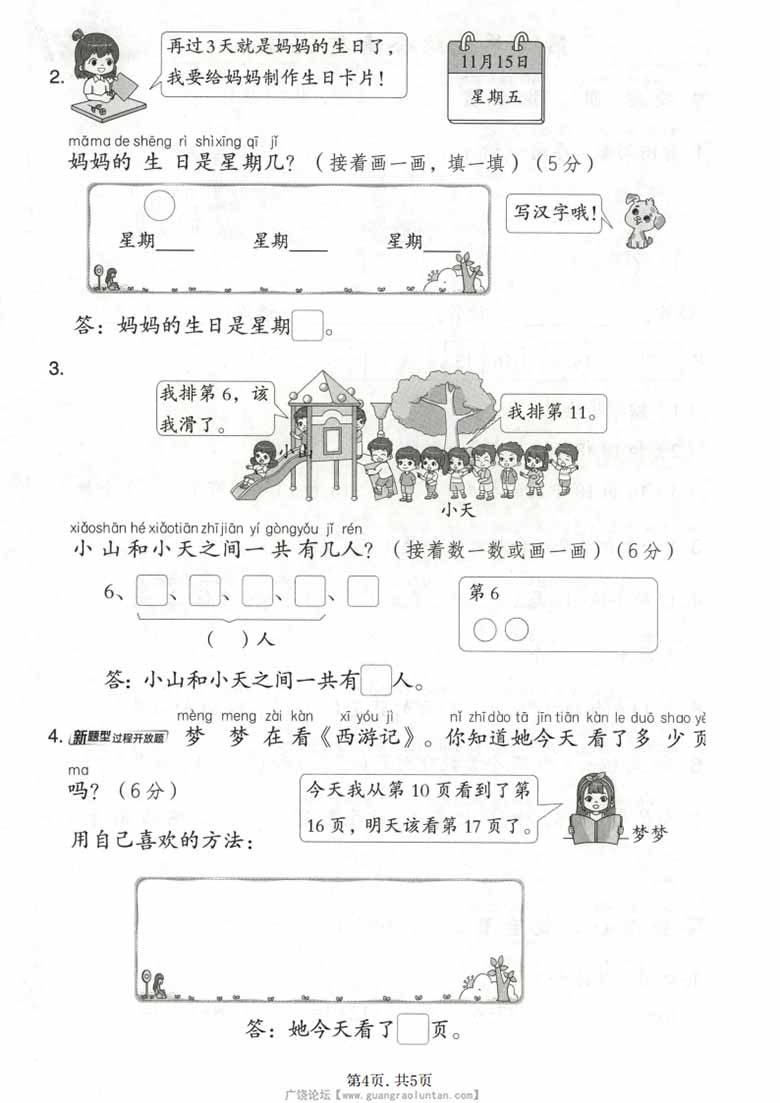 再过3天就是妈妈的生日了，
我要给妈妈制作生日卡片！
11月15日
星期五
2.
māma de shēng rì shì xīng qī jǐ
妈妈的生日是星期几？（接着画一画，填一填）（5分）
写汉字哦！
星期____ 星期____ 星期____
答：妈妈的生日是星期□。
3.
我排第6，该
我滑了。
我排第11。
小山
小天
xiǎoshān hé xiǎotiān zhī jiān yí gòngyǒu jǐ rén
小山和小天之间一共有几人？（接着数一数或画一画）（6分）
6、□、□、□、□、□
（ ）人
第6
○○
答：小山和小天之间一共有□人。
mèng meng zài kàn xī yóu jì nǐ zhī dào tā jīn tiān kàn le duō shao yè
4. 新题型 过程开放题 梦梦在看《西游记》。你知道她今天看了多少页
ma
吗？（6分）
今天我从第10页看到了第
16页，明天该看第17页了。
梦梦
用自己喜欢的方法：
答：她今天看了□页。
第4页，共5页
广饶论坛【www.guangraoluntan.com】